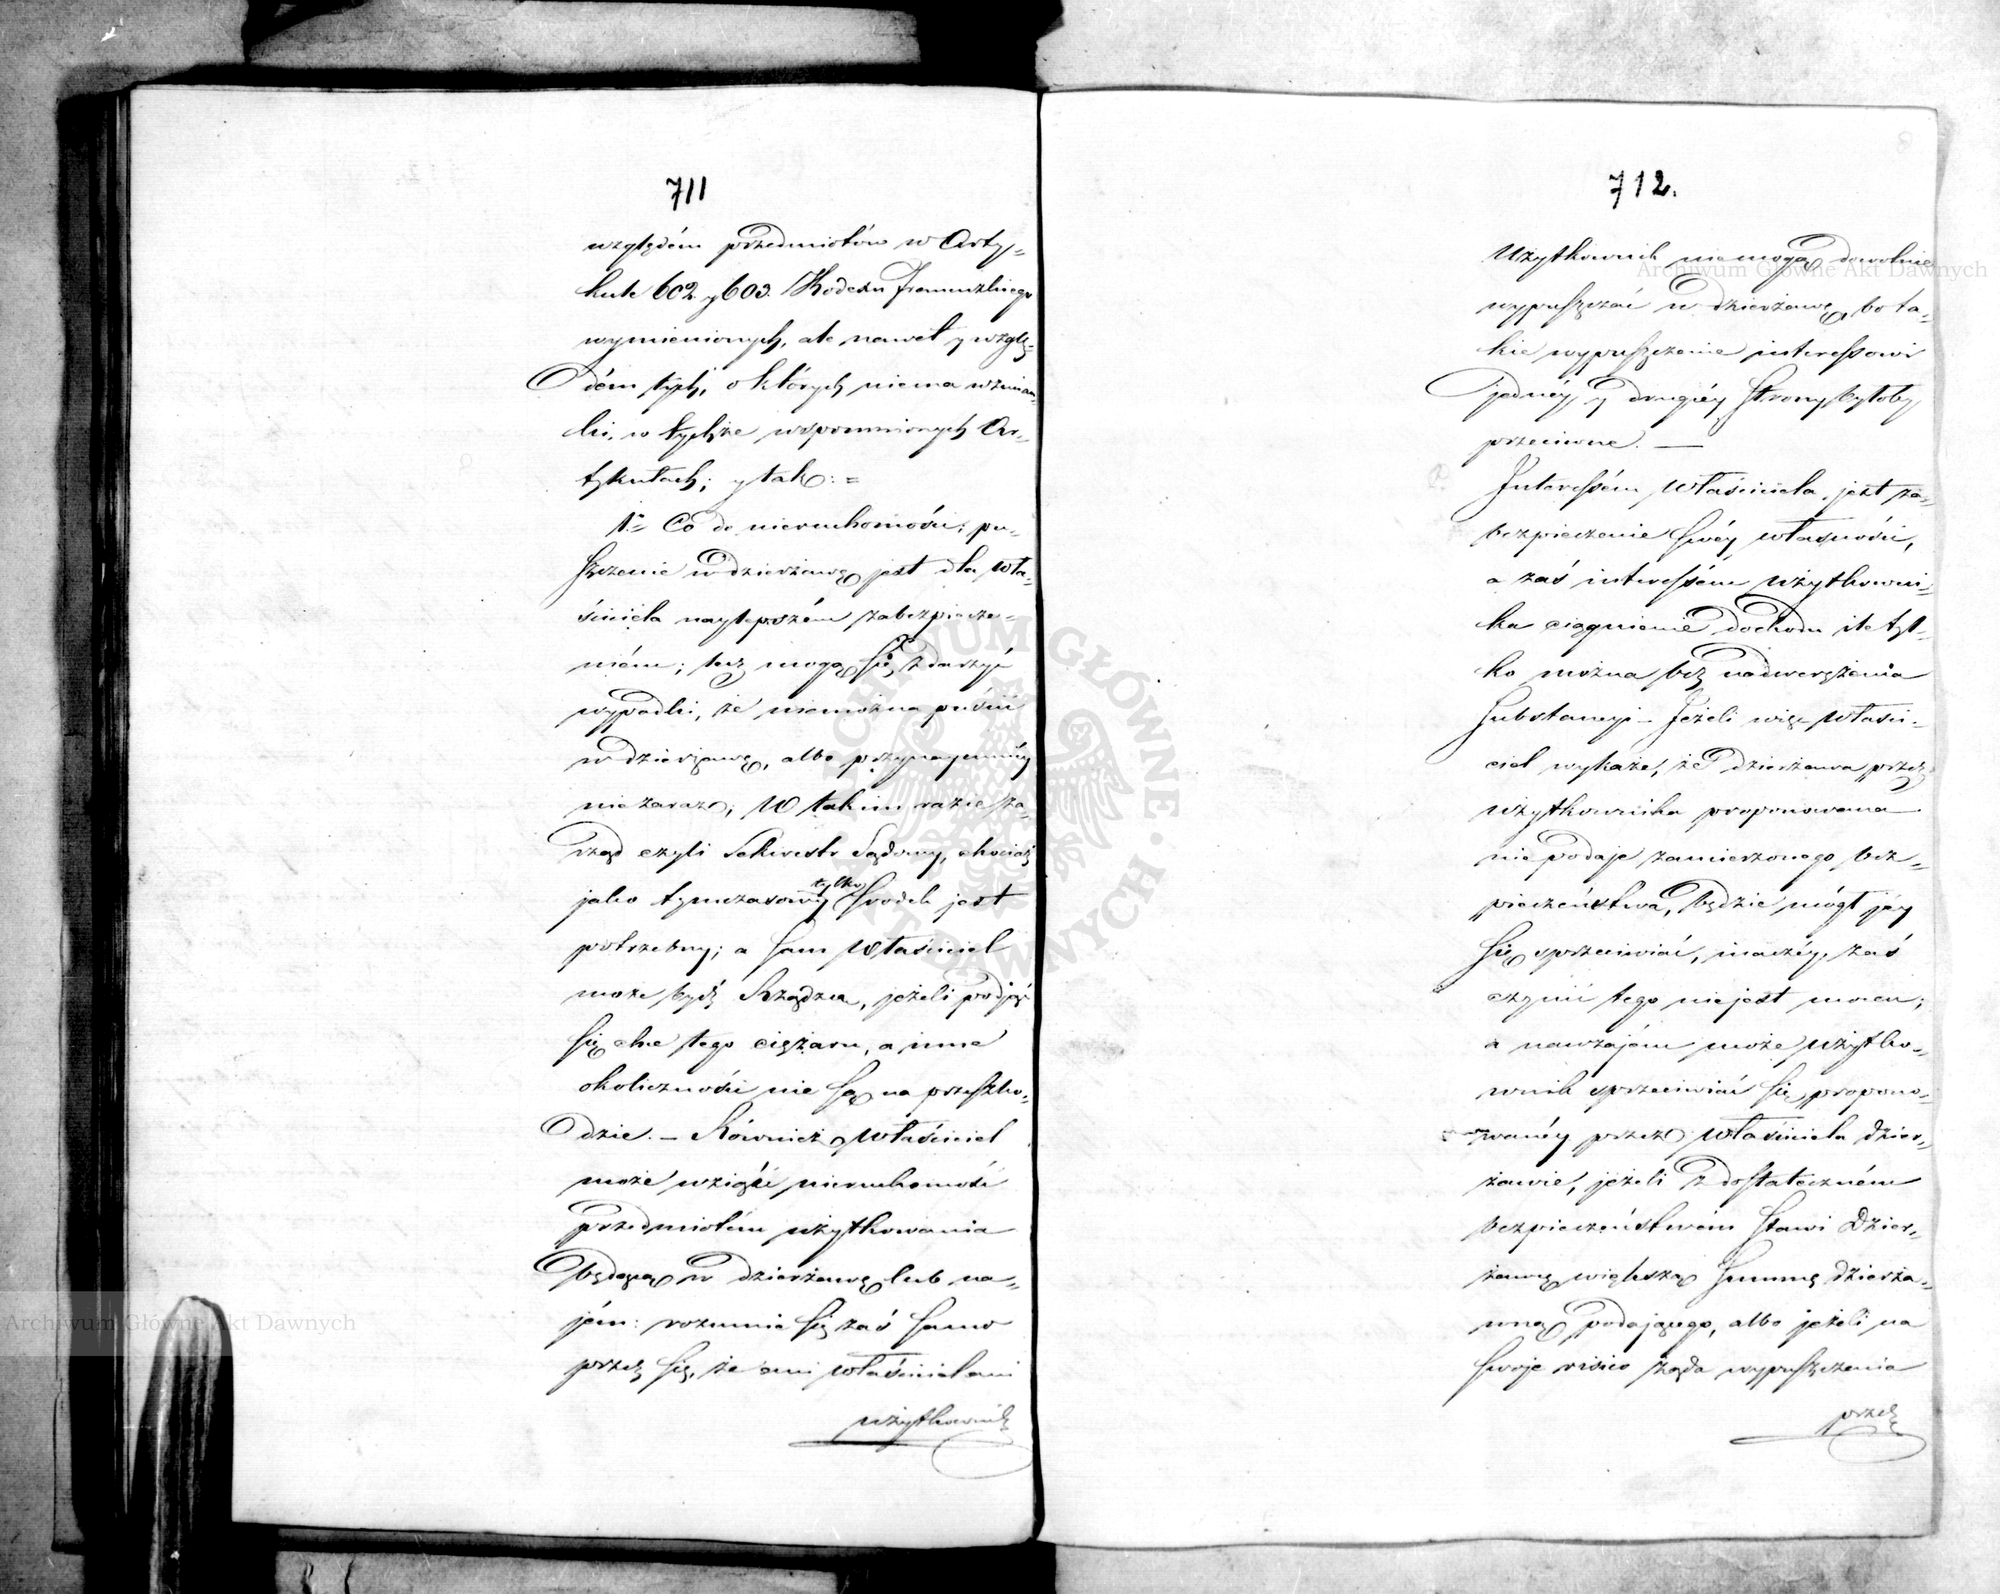 711
względém przedmiotów w Arty-
kule 602. y 603. Kodexu francuzkiego
wymienionych, ale nawet y wzglę-
dém tych, o których niema wzmian-
ki, w tychże wspomnionych Ar-
tykułach; y tak: =
1.° Co do nieruchomości, pu-
szczenie w dzierżawę jest dla wła-
ściciela naylepszém zabezpiecze-
niém; lecz mogą się zdarzyć
wypadki, że niemożna puścić
w dzierżawę, albo przynaymniéy
nie zaraz; W takim razie za-
rząd czyli Sekwestr Sądowy, chociaż
jako tymczasowy tylko środek jest
potrzebny; a sam Właściciel
może bydź Rządzcą, jeżeli podjąć
się chce tego ciężaru, a inne
okoliczności nie są na przeszko-
dzie. – Również Właściciel
może wziąść nieruchomość
przedmiotém użytkowania
będącą w dzierżawę lub na-
jém: rozumie się zaś samo
przez się, że ani właściciel ani
użytkownik
712.
Użytkownik niemogą dowolnie
wypuszczać w dzierżawę, bo ta-
kie wypuszczenie interessowi
jednéy y drugiéy Strony byłoby
przeciwne. —
Interessém Właściciela jest za-
bezpieczenie swéy własności,
a zaś interessém użytkowni-
ka ciągnienie dochodu ile tyl-
ko można bez nadweręzenia
Substancyi – Jeżeli więc właści-
ciel wykaże, że dzierżawa przez
użytkownika proponowana
nie podaje zamierzonego bez-
pieczeństwa, będzie mógł jéy
się sprzeciwiać, inaczéy zaś
czynić tego nie jest mocen;
a nawzajém może użytko-
wnik sprzeciwiać się propono-
wanéy przez Właściciela dzier-
żawie, jeżeli z dostateczném
bezpieczeństwem stawi Dzier-
żawcę większą summę dzierża-
wną podającego, albo jeżeli na
swoje risico żąda wypuszczenia
przez
Archiwum Główne Akt Dawnych
Archiwum Główne Akt Dawnych
ARCHIWUM GŁÓWNE AKT DAWNYCH